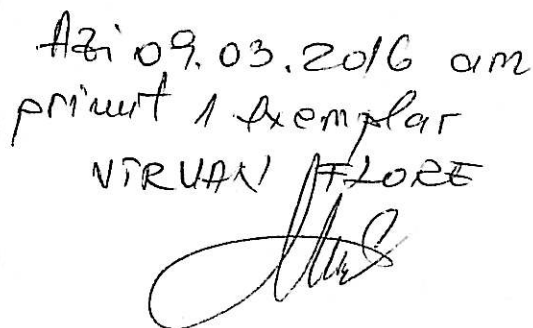 Azi 09.03.2016 am
primit 1 exemplar
VIRVAN FLORE